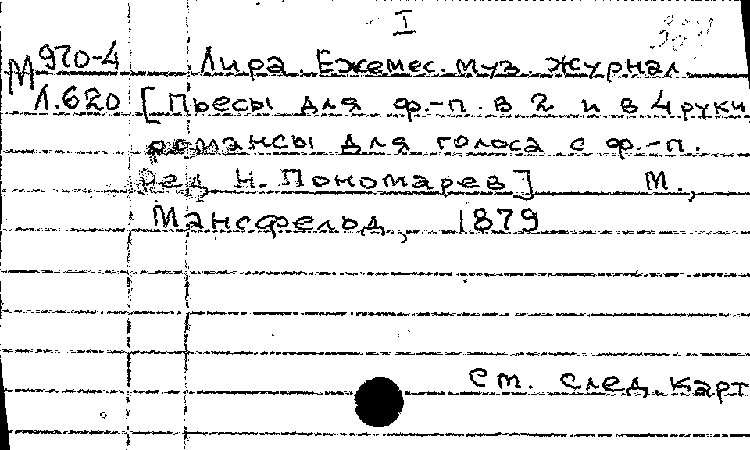 I
М 970-4 Лира. Ежемес. муз. журнал.
Л.620 [Пьесы для ф.-п. в 2 и в 4 руки
романсы для голоса с ф.-п.
Ред. Н. Пономарев] М.,
Мансфельд, 1879
см. след. карт